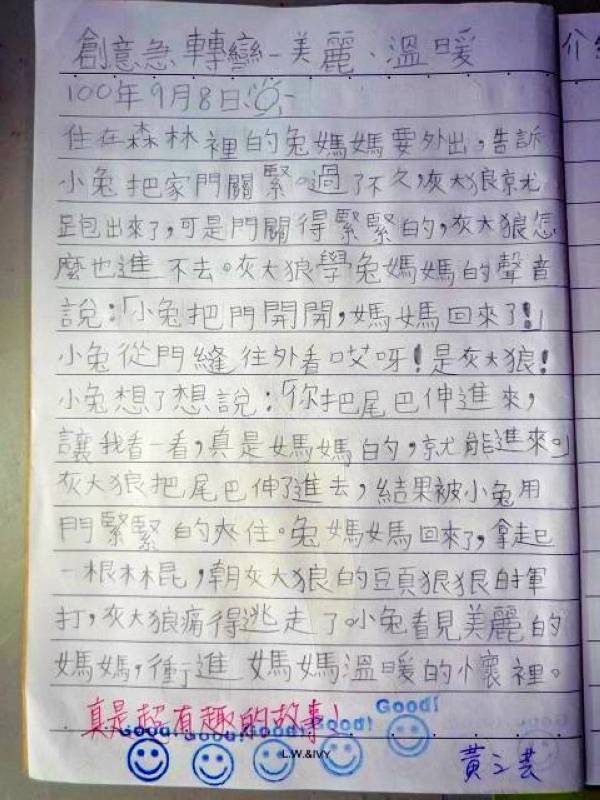 創意急轉彎-美麗、溫暖
100年9月8日
住在森林裡的兔媽媽要外出，告訴
小兔把家門關緊。過了不久，灰大狼就
跑出來了，可是門關得緊緊的，灰大狼怎
麼也進不去。灰大狼學兔媽媽的聲音
說：「小兔把門開開，媽媽回來了！」
小兔從門縫往外看哎呀！是灰大狼！
小兔想了想說：「你把尾巴伸進來，
讓我看一看，真是媽媽的，就能進來。」
灰大狼把尾巴伸了進去，結果被小兔用
門緊緊的夾住。兔媽媽回來了，拿起
一根木棍，朝灰大狼的頭狠狠的揮
打，灰大狼痛得逃走了。小兔看見美麗的
媽媽，衝進媽媽溫暖的懷裡。
真是超有趣的故事！
Good! Good! Good! Good! Good!
L.W.&IVY
介